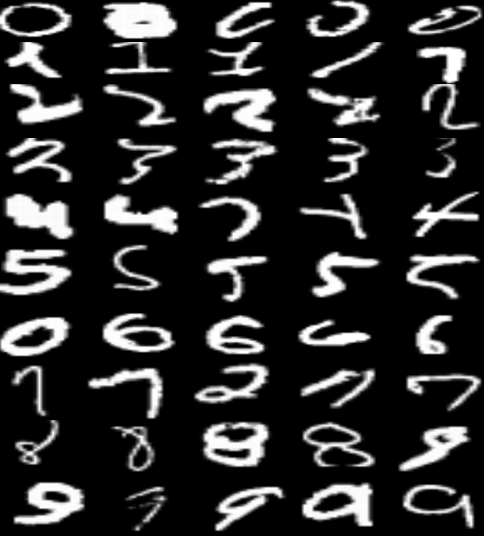 0 0 0
1 1 1 7
2 2 2 2 2
3 3 3 3 3
4 4 4 4
5 5 5 5 5
0 6 6 6 6
7 7 2 7 7
8 8 8 8 8
9 9 9 9 9